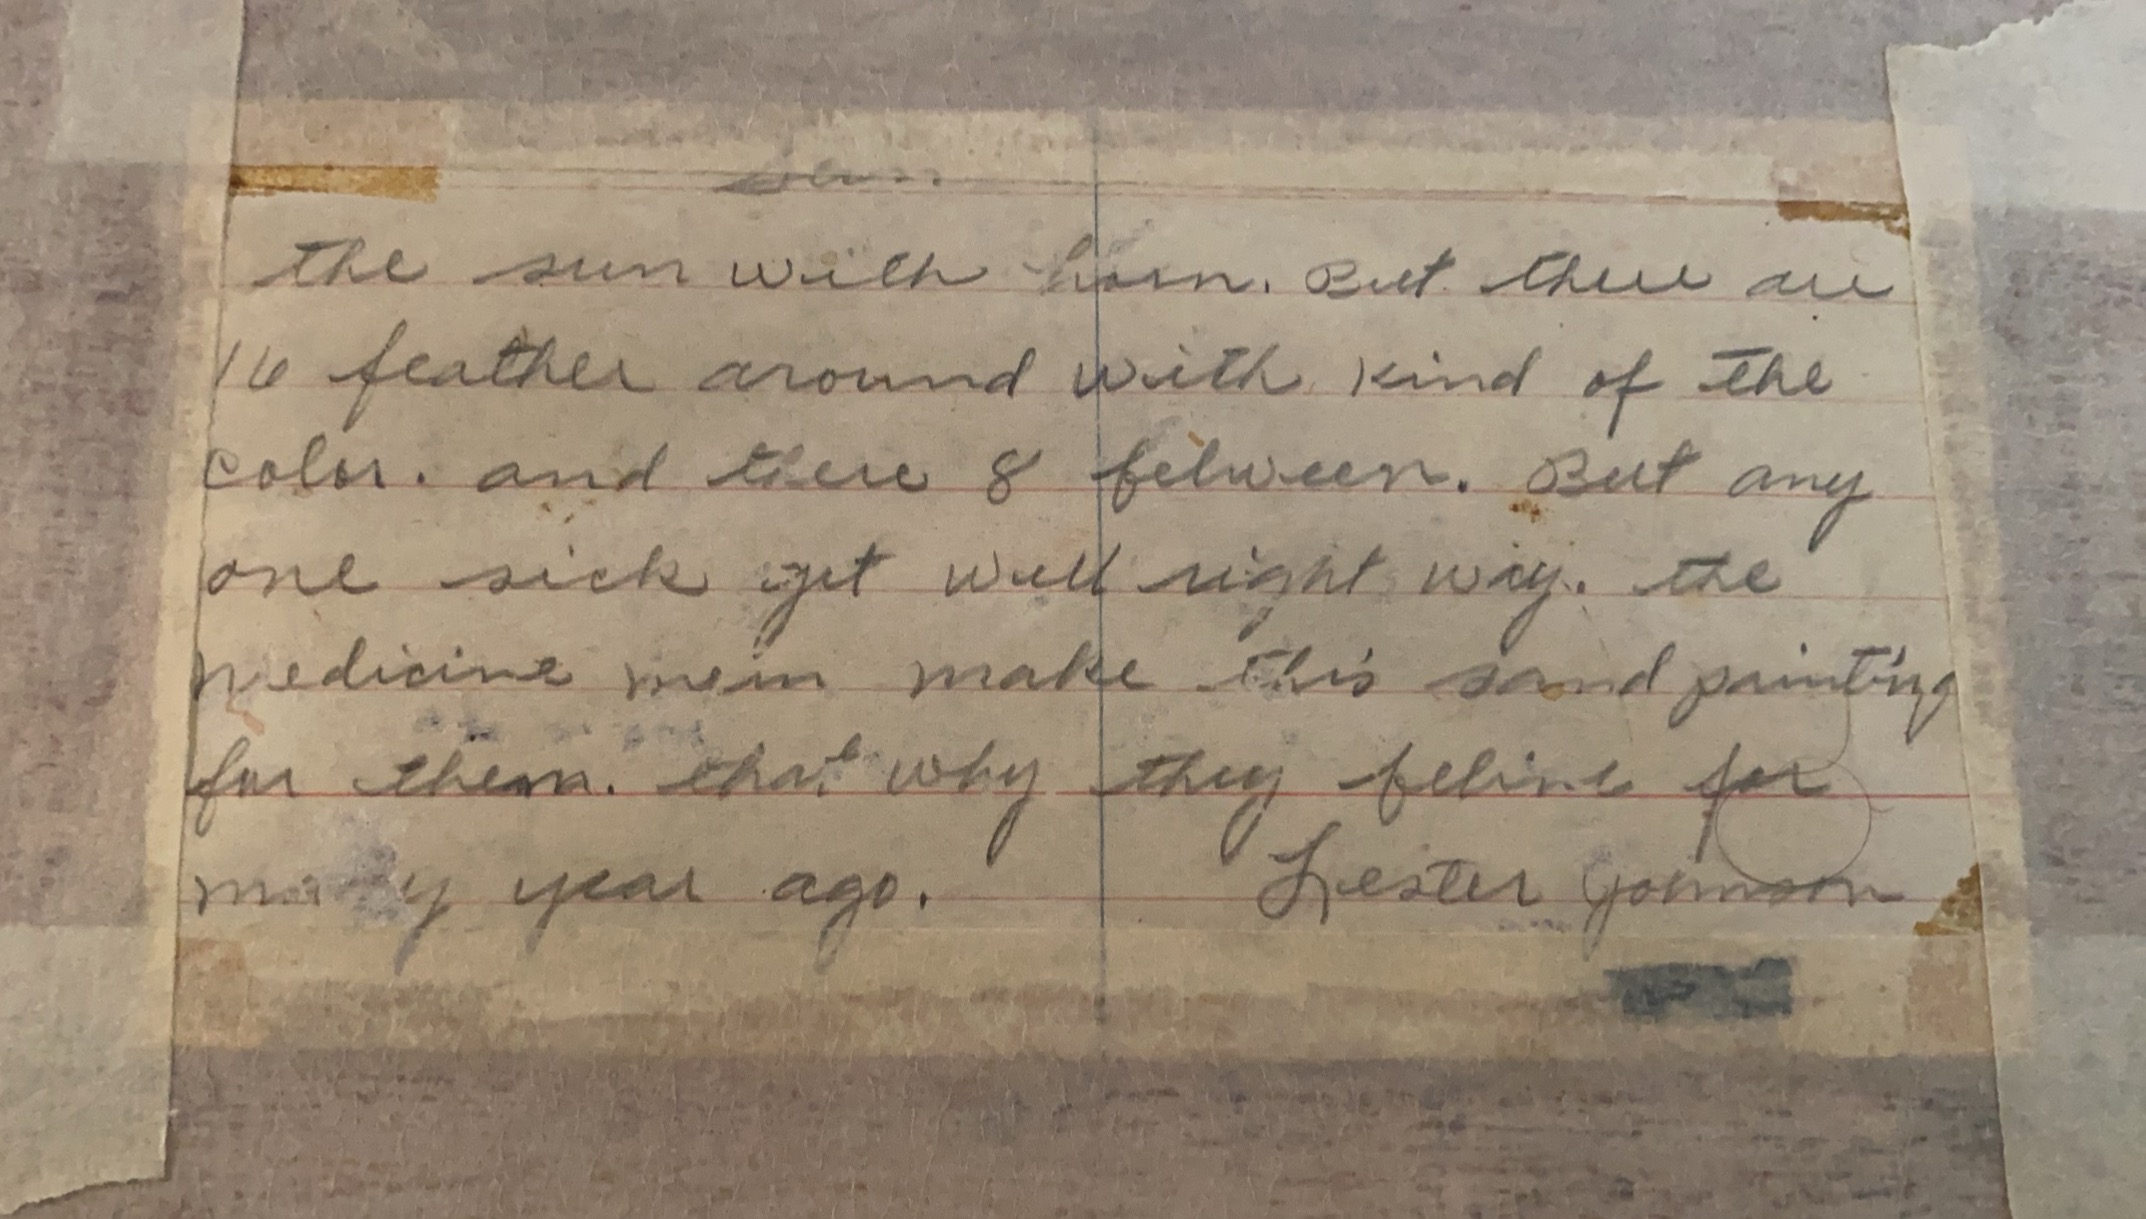 Sun.
the sun with horn. But there are
16 feather around with kind of the
color. and there 8 between. But any
one sick get well right way. the
medicine mein make this sand painting
for them. that why they beline for
many year ago. Lester Johnson